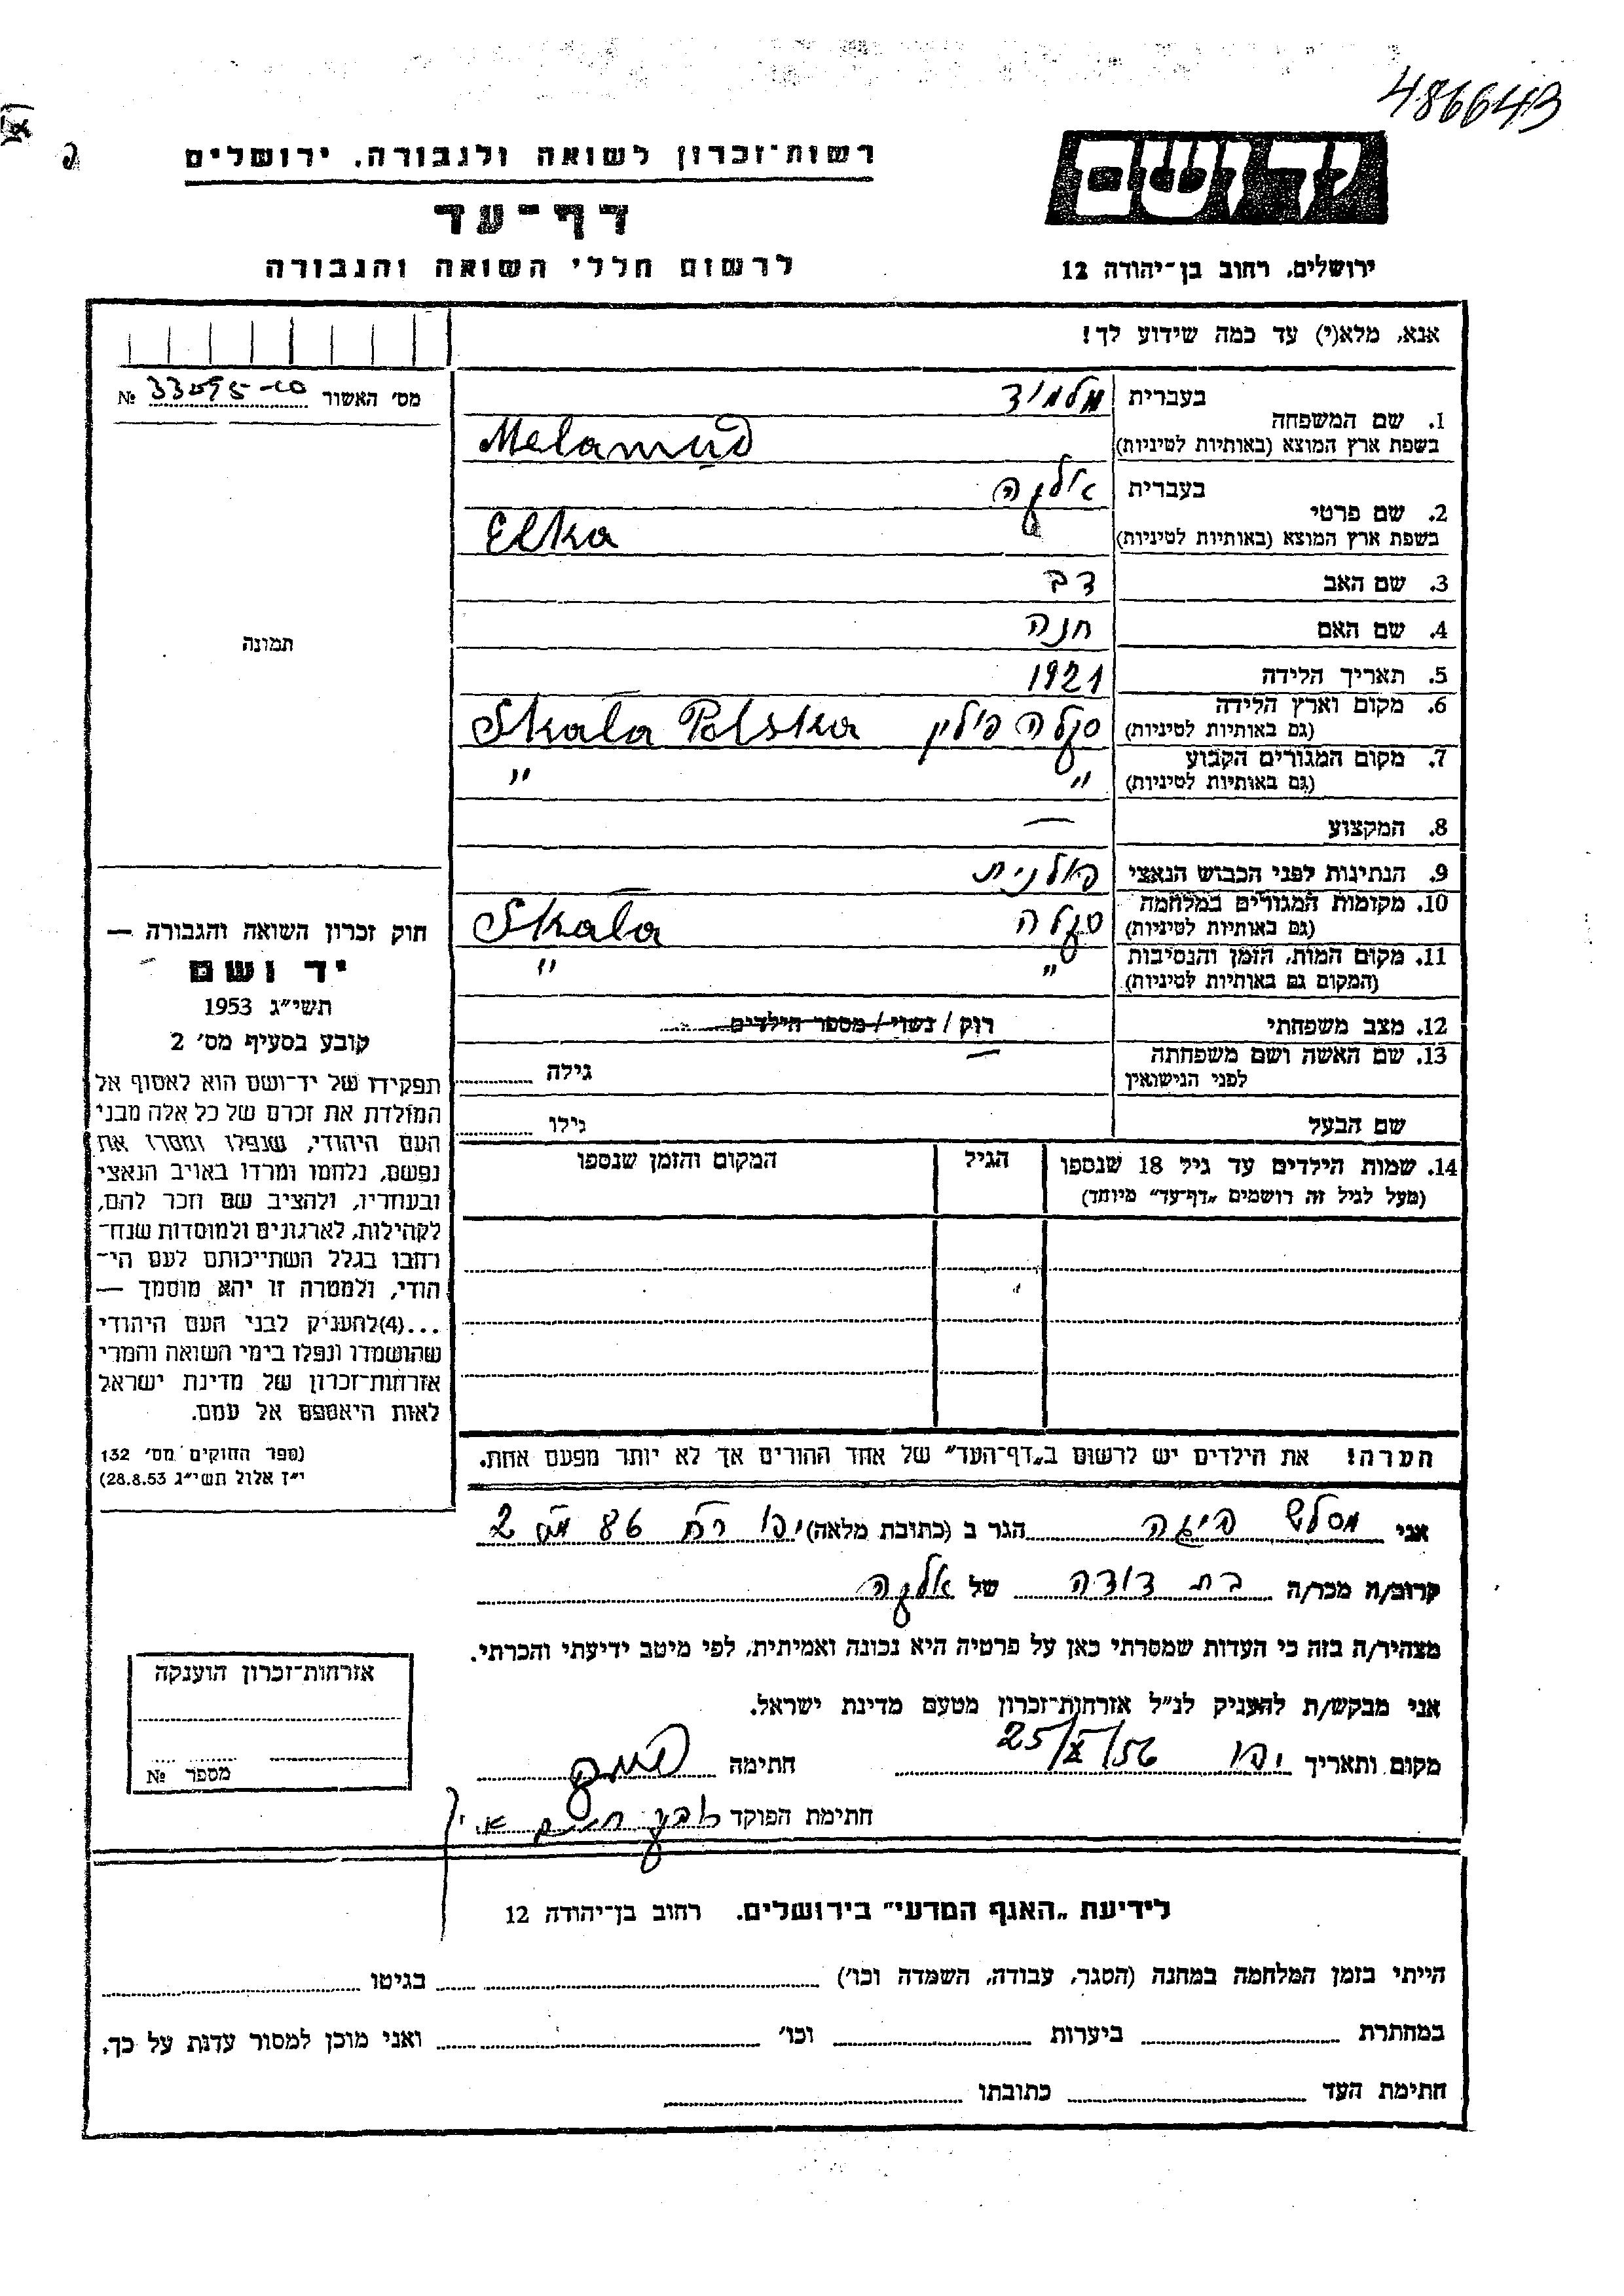 486643
יד ושם
רשות־זכרון לשואה ולגבורה, ירושלים
דף־עד
לרשום חללי השואה והגבורה
ירושלים, רחוב בן־יהודה 12
אנא, מלא(י) עד כמה שידוע לך!
מס׳ האשור №
1. שם המשפחה
בעברית מלמוד
בשפת ארץ המוצא (באותיות לטיניות) Melamud
2. שם פרטי
בעברית אלקה
בשפת ארץ המוצא (באותיות לטיניות) Elka
3. שם האב דב
4. שם האם חנה
תמונה
5. תאריך הלידה 1921
6. מקום וארץ הלידה סקלה פולין Skala Polska
(גם באותיות לטיניות)
7. מקום המגורים הקבוע " "
(גם באותיות לטיניות)
8. המקצוע —
9. הנתינות לפני הכבוש הנאצי פולנית
10. מקומות המגורים במלחמה סקלה Skala
(גם באותיות לטיניות)
11. מקום המות, הזמן והנסיבות " "
(המקום גם באותיות לטיניות)
12. מצב משפחתי רוק / נשוי / מספר הילדים
13. שם האשה ושם משפחתה — גילה
לפני הנישואין
שם הבעל גילו
14. שמות הילדים עד גיל 18 שנספו הגיל המקום והזמן שנספו
(מעל לגיל זה רושמים „דף־עד" מיוחד)
הערה! את הילדים יש לרשום ב„דף־העד" של אחד ההורים אך לא יותר מפעם אחת.
חוק זכרון השואה והגבורה —
יד ושם
תשי״ג 1953
קובע בסעיף מס׳ 2
תפקידו של יד־ושם הוא לאסוף אל
המולדת את זכרם של כל אלה מבני
העם היהודי, שנפלו ומסרו את
נפשם, נלחמו ומרדו באויב הנאצי
ובעוזריו, ולהציב שם וזכר להם,
לקהילות, לארגונים ולמוסדות שנח־
רחבו בגלל השתייכותם לעם הי־
הודי, ולמטרה זו יהא מוסמך —
...(4)להעניק לבני העם היהודי
שהושמדו ונפלו בימי השואה והמרי
אזרחות־זכרון של מדינת ישראל
לאות היאספם אל עמם.
(ספר החוקים מס׳ 132
י״ז אלול תשי״ג 28.8.53)
אני הגר ב (כתובת מלאה) יפו רח 2
קרוב/ה מכר/ה בת דודה של אלקה
מצהיר/ה בזה כי העדות שמסרתי כאן על פרטיה היא נכונה ואמיתית, לפי מיטב ידיעתי והכרתי.
אני מבקש/ת להעניק לנ״ל אזרחות־זכרון מטעם מדינת ישראל.
מקום ותאריך יפו 25/X/56 חתימה
חתימת הפוקד
אזרחות־זכרון הוענקה
מספר №
לידיעת „האגף המדעי" בירושלים, רחוב בן־יהודה 12
הייתי בזמן המלחמה במחנה (הסגר, עבודה, השמדה וכו׳) בגיטו
במחתרת ביערות וכו׳ ואני מוכן למסור עדות על כך.
חתימת העד כתובתו